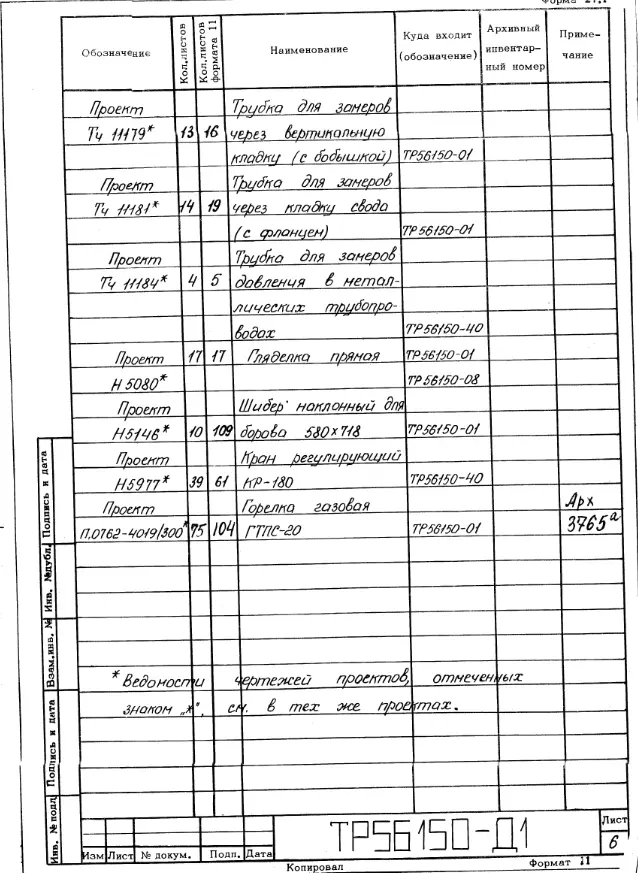 Обозначение Кол.листов Кол.листов формата 11 Наименование Куда входит (обозначение) Архивный инвентар- ный номер Приме- чание
Проект Трубка для замеров
Тч 11179* 13 16 через вертикальную
кладку (с бобышкой) ТР56150-01
Проект Трубка для замеров
Тч 11181* 14 19 через кладку свода
(с фланцем) ТР56150-01
Проект Трубка для замеров
Тч 11184* 4 5 давления в метал-
лических трубопро-
водах ТР56150-40
Проект 17 17 Гляделка прямая ТР56150-01
Н5080* ТР56150-08
Проект Шибер наклонный для
Н5146* 10 109 борова 580х718 ТР56150-01
Проект Кран регулирующий
Н5977* 39 61 КР-180 ТР56150-40
Проект Горелка газовая Арх
П.0762-4019/300* 75 104 ГТПС-20 ТР56150-01 3765а
* Ведомости чертежей проектов, отмеченных
знаком „*", см. в тех же проектах.
Подпись и дата
Инв. №дубл.
Взам.инв. №
Подпись и дата
Инв. № подл
Изм Лист № докум. Подп. Дата
ТР56150-Д1
Лист
6
Копировал Формат 11